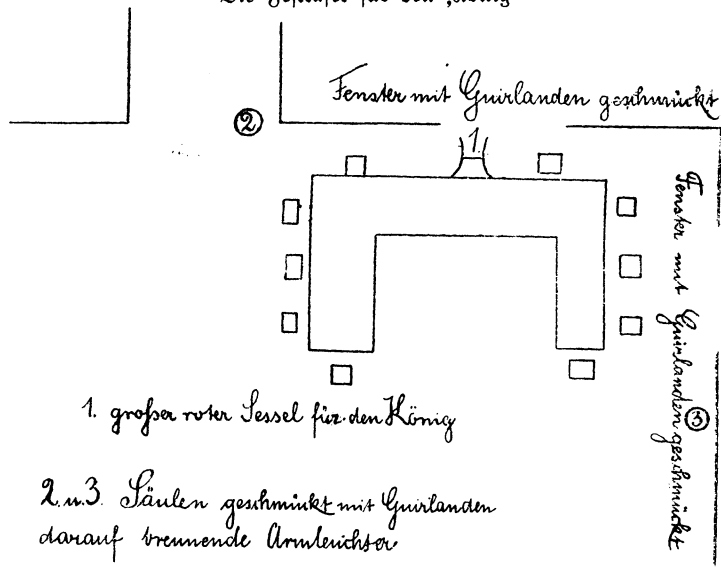 Die Festtafel für den König
Fenster mit Guirlanden geschmückt
2
1.
Fenster mit Guirlanden geschmückt
3
1. großer roter Sessel für den König
2. u. 3. Säulen geschmückt mit Guirlanden
darauf brennende Armleuchter